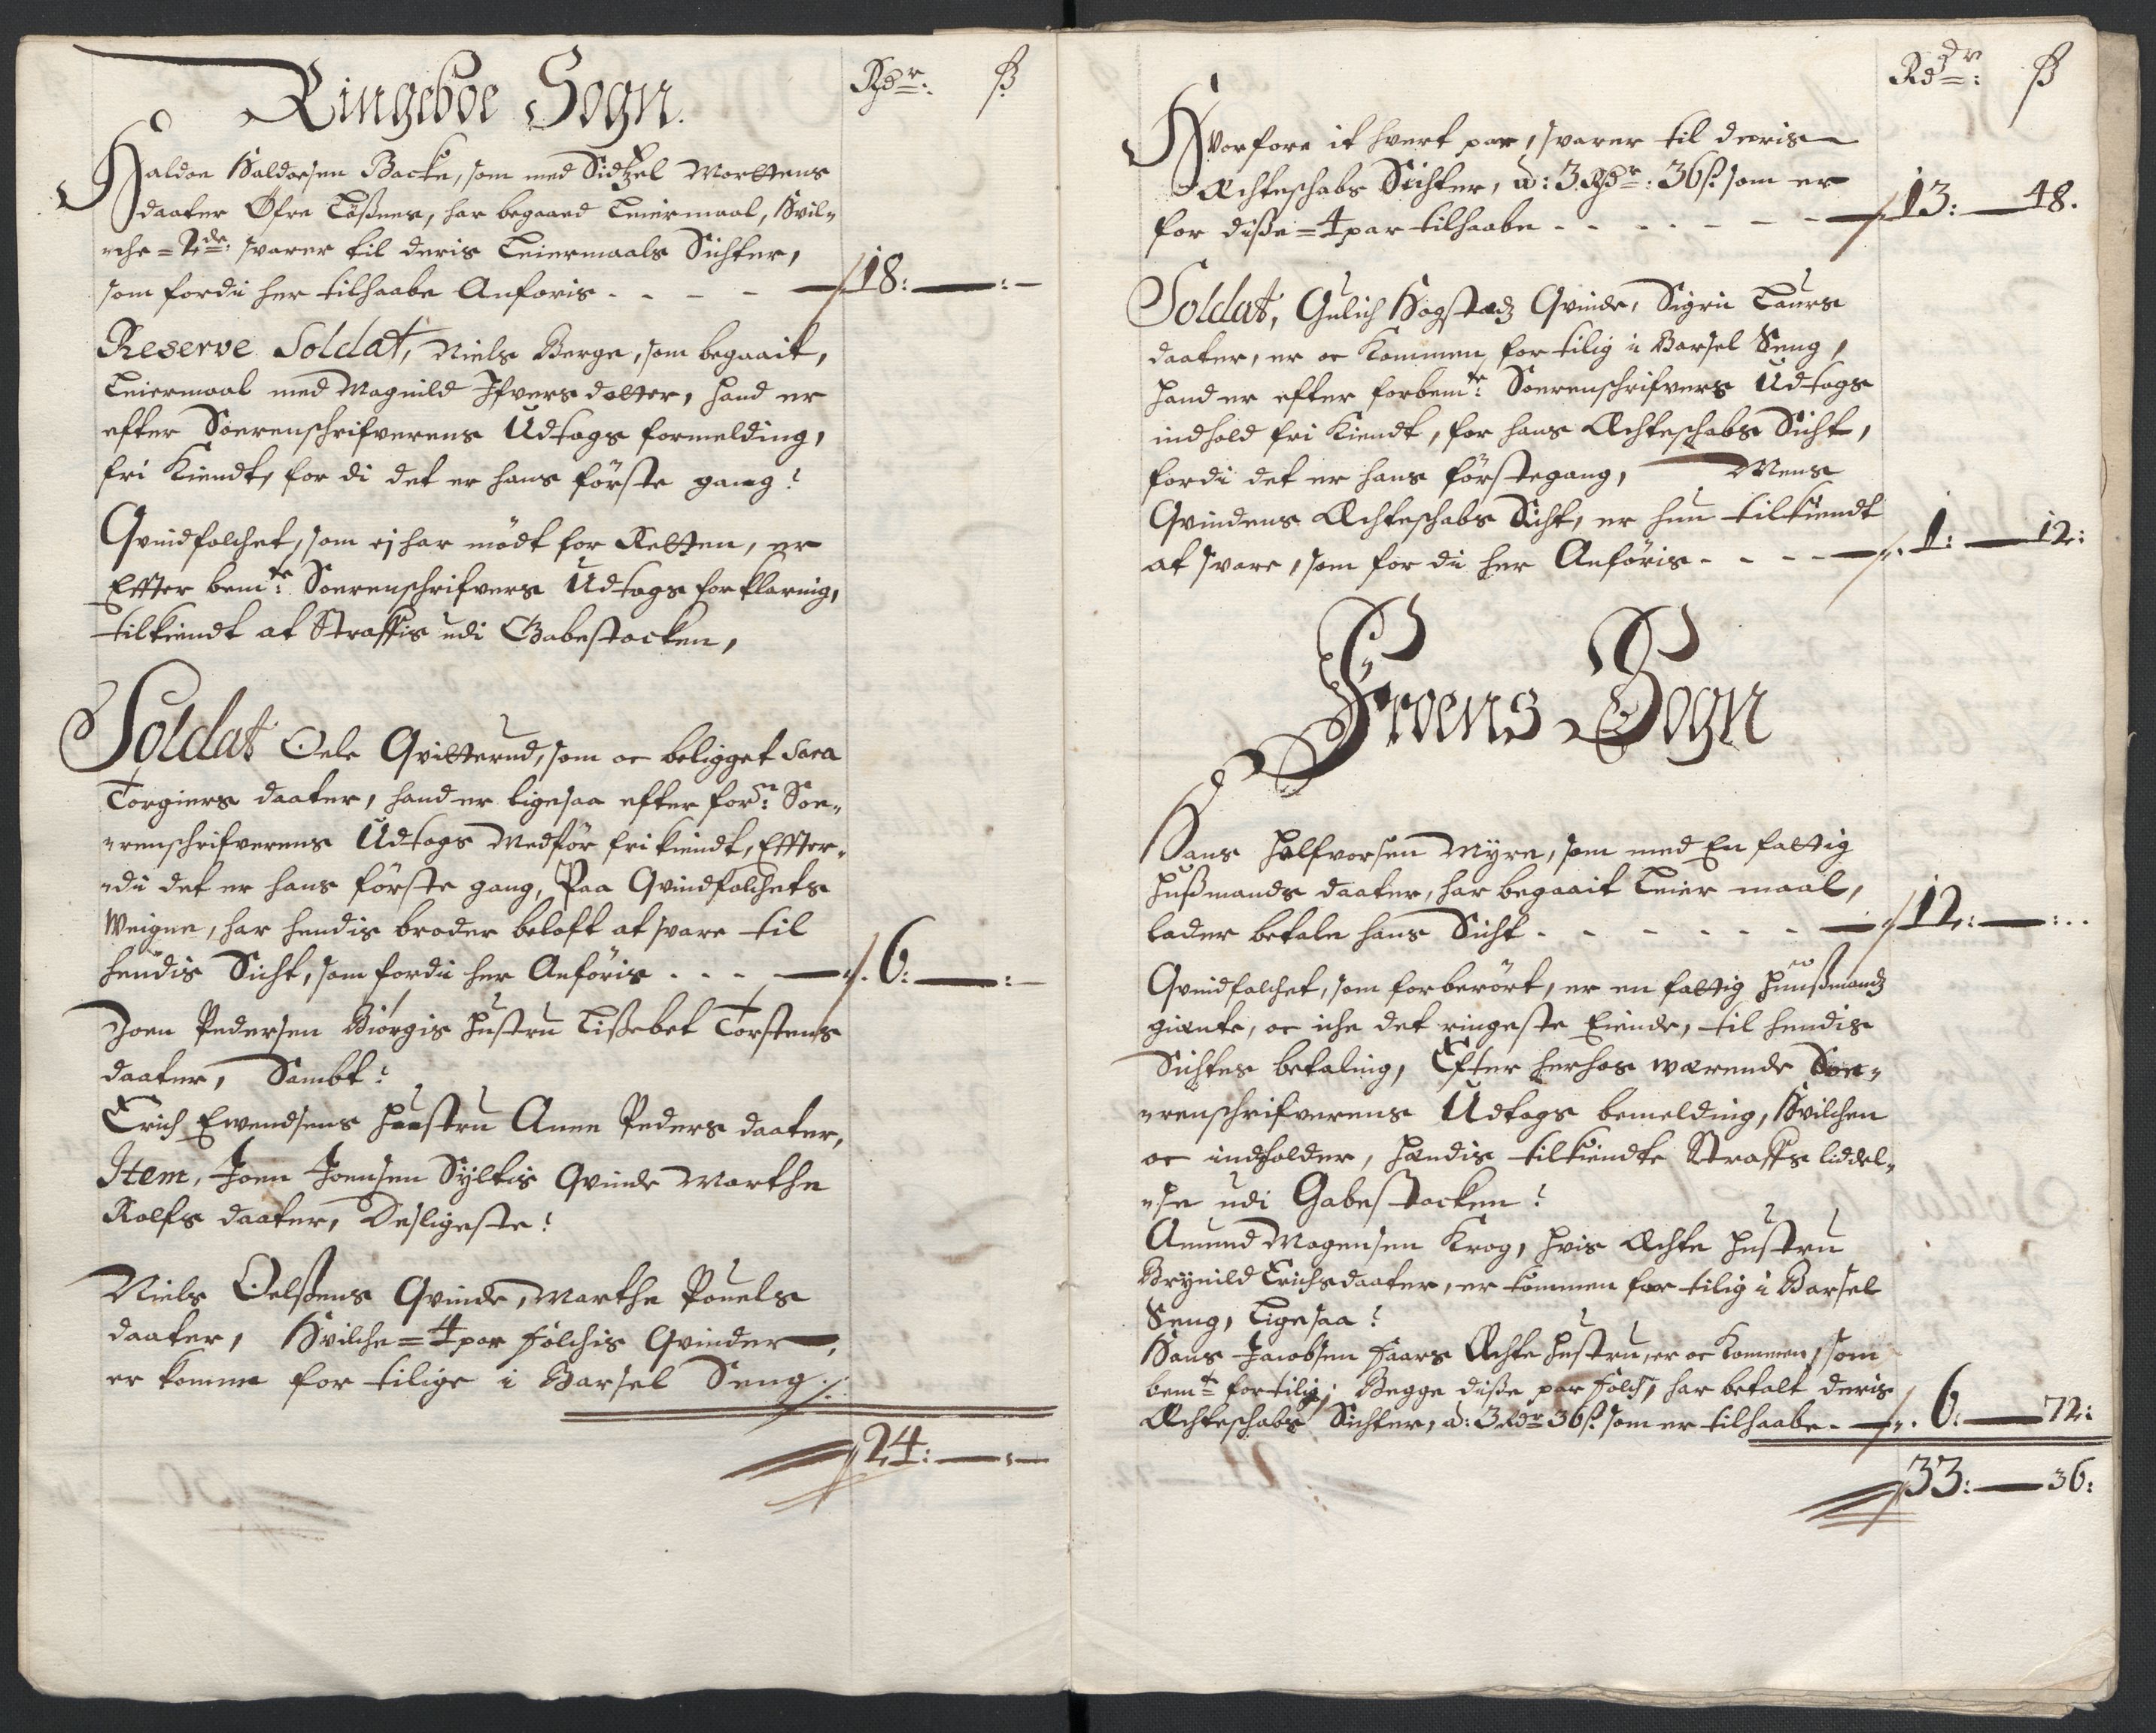 Ringeboe Sogn.
Rdr: ß
Haldor Haldorsen Backe, som med Sidzel Morttens
daater Øfre Tößnes, har begaaed Leiermaal, Hvil„
„che = 2de: svarer til deris Leiermaals Sichter,
som fordi her tilhaabe Anföris - - - - 18: — : —
Reserve Soldat, Niels Berge, som begaait,
Leiermaal med Magnild Ifvers dotter, hand er
efter Soerenschrifverens Udtogs formelding,
fri Kiendt, for di det er hans förste gang:
Qvindfolchet, som ej har mödt for Retten, er
Efter bemte: Soerenschrifvers Udtogs forklaring,
tilkiendt at Straffis udi Gabestocken,
Soldat Oele Qvitterud, som oc beligget Sara
Torgiers daater, hand er ligesaa efter for: Soe„
„renschrifverens Udtogs Medför frikiendt, Effter„
„di det er hans förste gang, Paa Qvindfolchets
Weigne, har hendis broder beloft at svare til
hendis Sicht, som fordi her Anföris - - - 6: — : —
Joen Pedersen Biörgis Hustru Lißebet Torstens
daater, Sambt:
Erich Ewendsens Hustru Anne Peders daater,
Item, Joen Joensen Syltis Qvinde Marthe
Rolfs daater, Desligeste:
Niels Oelßens Qvinde, Marthe Pouels
daater, Hvilche = 4 par Folchis Qvinder,
er komme for tilige i Barsel Seng ./.
24: — : —
Rdr: ß
Hvorfore it hvert par, svarer til deris
Ächteschabs Sichter, à: 3 Rdr: 36 ß: som er
for diße = 4 par tilhaabe - - - - 13: — 48.
Soldat, Gulich Hogstadz Qvinde, Sigri Laurs
daater, er oc Kommen for tilig i Barsel Seng,
Hand er efter forbemte: Soerenschrifvers Udtogs
indhold fri Kiendt, for hans Ächteschabs Sicht,
fordi det er hans förstegang, Mens
Qvindens Ächteschabs Sicht, er hun tilkiendt
at svare, som for di her Anföris - - - 1: — 12:
Froens Sogn
Hans Halfvorsen Myre, som med En fattig
Hußmands daater, har begaait Leier maal,
lader betale hans Sicht - - - - - - 12: — : - -
Qvindfolchet, som forberört, er en fattig Huußmandz
giente, oc iche det ringeste Eiende, til hendis
Sichtes betaling, Efter herhos wærende Soe„
„renschrifverens Udtogs bemelding, Hvilchen
oc indholder, Hendis tilkiendte Straffs liddel„
„se udi Gabestocken:
Amund Mogensen Krog, Hvis Ächte Hustru
Brynild Erichsdaater, er kommen for tilig i Barsel
Seng, Ligesaa:
Hans Jacobsen Haars Ächte Hustru, er oc Kommen, som
bemt: for tilig; Begge diße par Folch, har betalt deris
Ächteschabs Sichter, à: 3 Rdr 36 ß: som er tilhaabe - 6: — 72:
33: — 36: